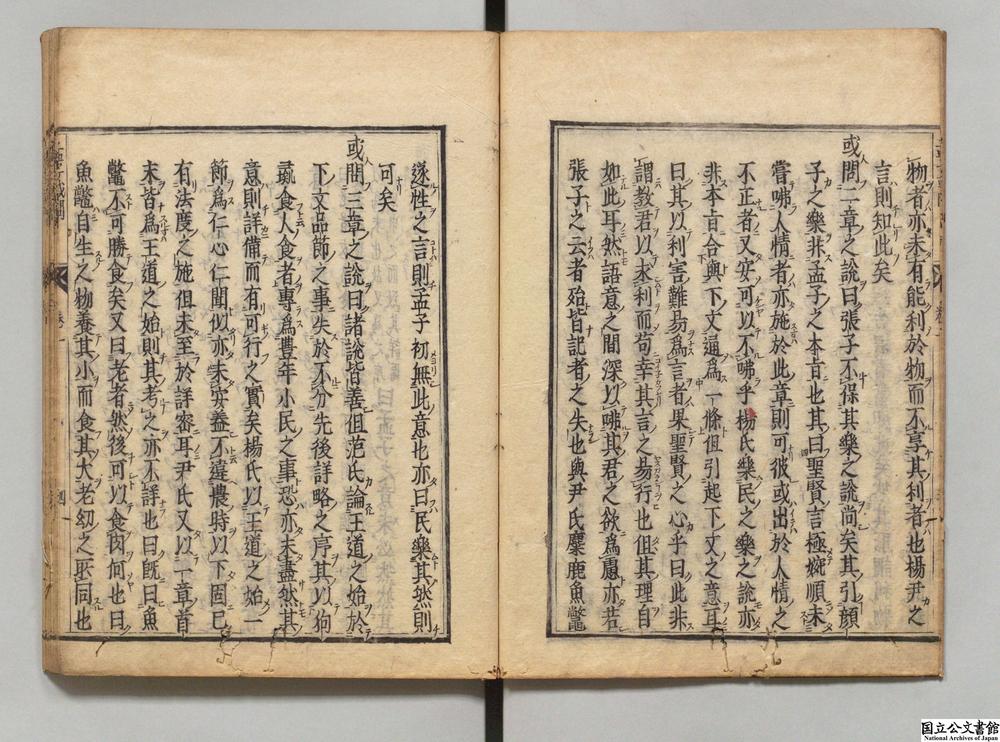 物者亦未有能利於物而不享其利者也楊尹之
言則知此矣
或問一章之說曰張子不保其樂之說尚矣其引顔
子之樂非孟子之本旨也其曰聖賢言極婉順未
嘗咈人情者亦施於此章則可彼或出於人情之
不正者又安可以不咈乎楊氏樂民之樂之說亦
非本旨合與下文通爲一條但引起下文之意耳
曰其以利害難易爲言者果聖賢之心乎曰此非
謂教君以求利而苟幸其言之易行也但其理自
如此耳然語意之間深以咈其君之欲爲慮亦若
張子之云者殆皆記者之失也與尹氏麋鹿魚鼈
遂性之言則孟子初無此意也亦曰民樂其然則
可矣
或問三章之說曰諸說皆善但范氏論王道之始於
下文品節之事失於不分先後詳略之序其以狗
彘食人食者專爲豊年小民之事恐亦未盡然其
意則詳備而有可行之實矣楊氏以王道之始一
節爲仁心仁聞似亦未安蓋不違農時以下固已
有法度之施但未至於詳密耳尹氏又以一章首
末皆爲王道之始則其考之亦不詳也曰既曰魚
鼈不可勝食矣又曰老者然後可以食肉何也曰
魚鼈自生之物養其小而食其大老幼之所同也
国立公文書館
National Archives of Japan